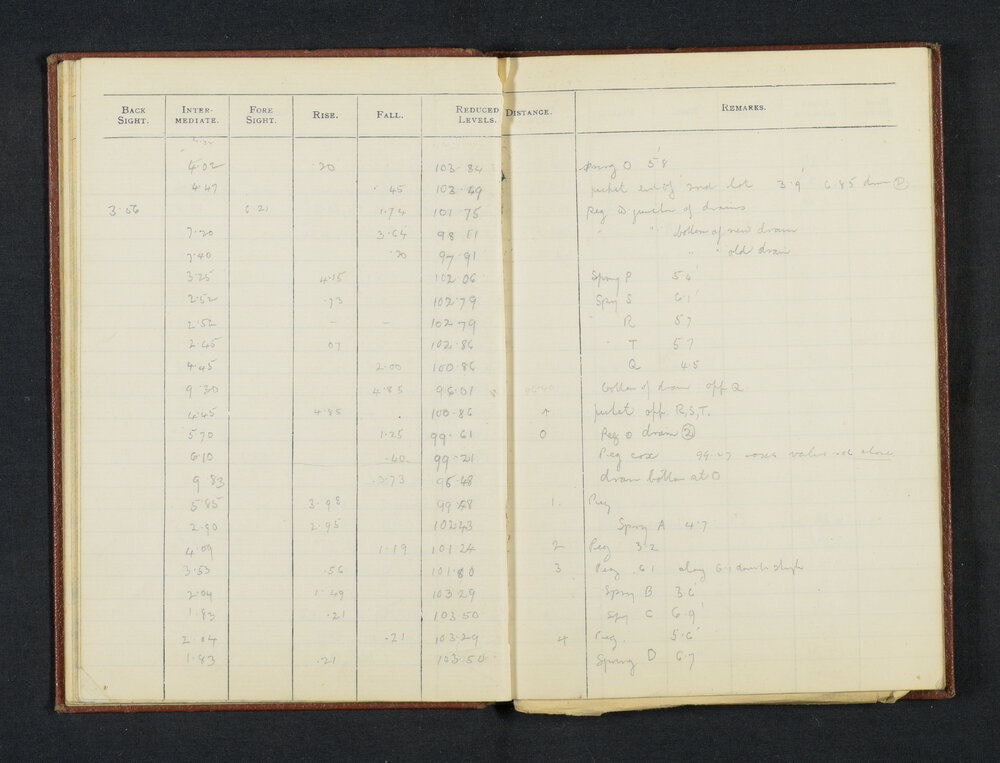 BACK SIGHT. INTER-MEDIATE. FORE SIGHT. RISE. FALL. REDUCED LEVELS. DISTANCE. REMARKS.
4.02 .20 103.84 Spring O 5.8'
4.47 .45 103.49 2nd lot 3.9' 6.85 drain ①
3.06 6.21 1.74 101.75 Peg D junction of drains
7.20 3.64 98.11 " " bottom of new drain
7.40 .20 97.91 " " old drain
3.25 4.15 102.06 Spring P
2.52 .73 102.79 Spring S 6.1'
2.52 - - 102.79 " R 5.7
2.45 .07 102.86 " T 5.7
4.45 2.00 100.86 Q 4.5
9.30 4.85 96.01 bottom of drain opp. Q
4.45 4.85 100.86 opp. R, S, T.
5.70 1.25 99.61 0 Peg 0 drain ②
6.10 .40 99.21 Peg
9.83 3.73 drain bottom at 0
5.85 3.98 1. Peg
2.90 2.95 102.43 Spring A 4.7'
4.09 1.19 101.24 2 Peg 3.2
3.53 .56 101.80 3 Peg 6.1 along
2.04 1.49 103.29 Spring B 3.6'
1.83 .21 103.50 Spring C 6.9'
2.04 .21 103.29 4 Peg. 5.6'
1.83 .21 103.50 Spring D 6.7